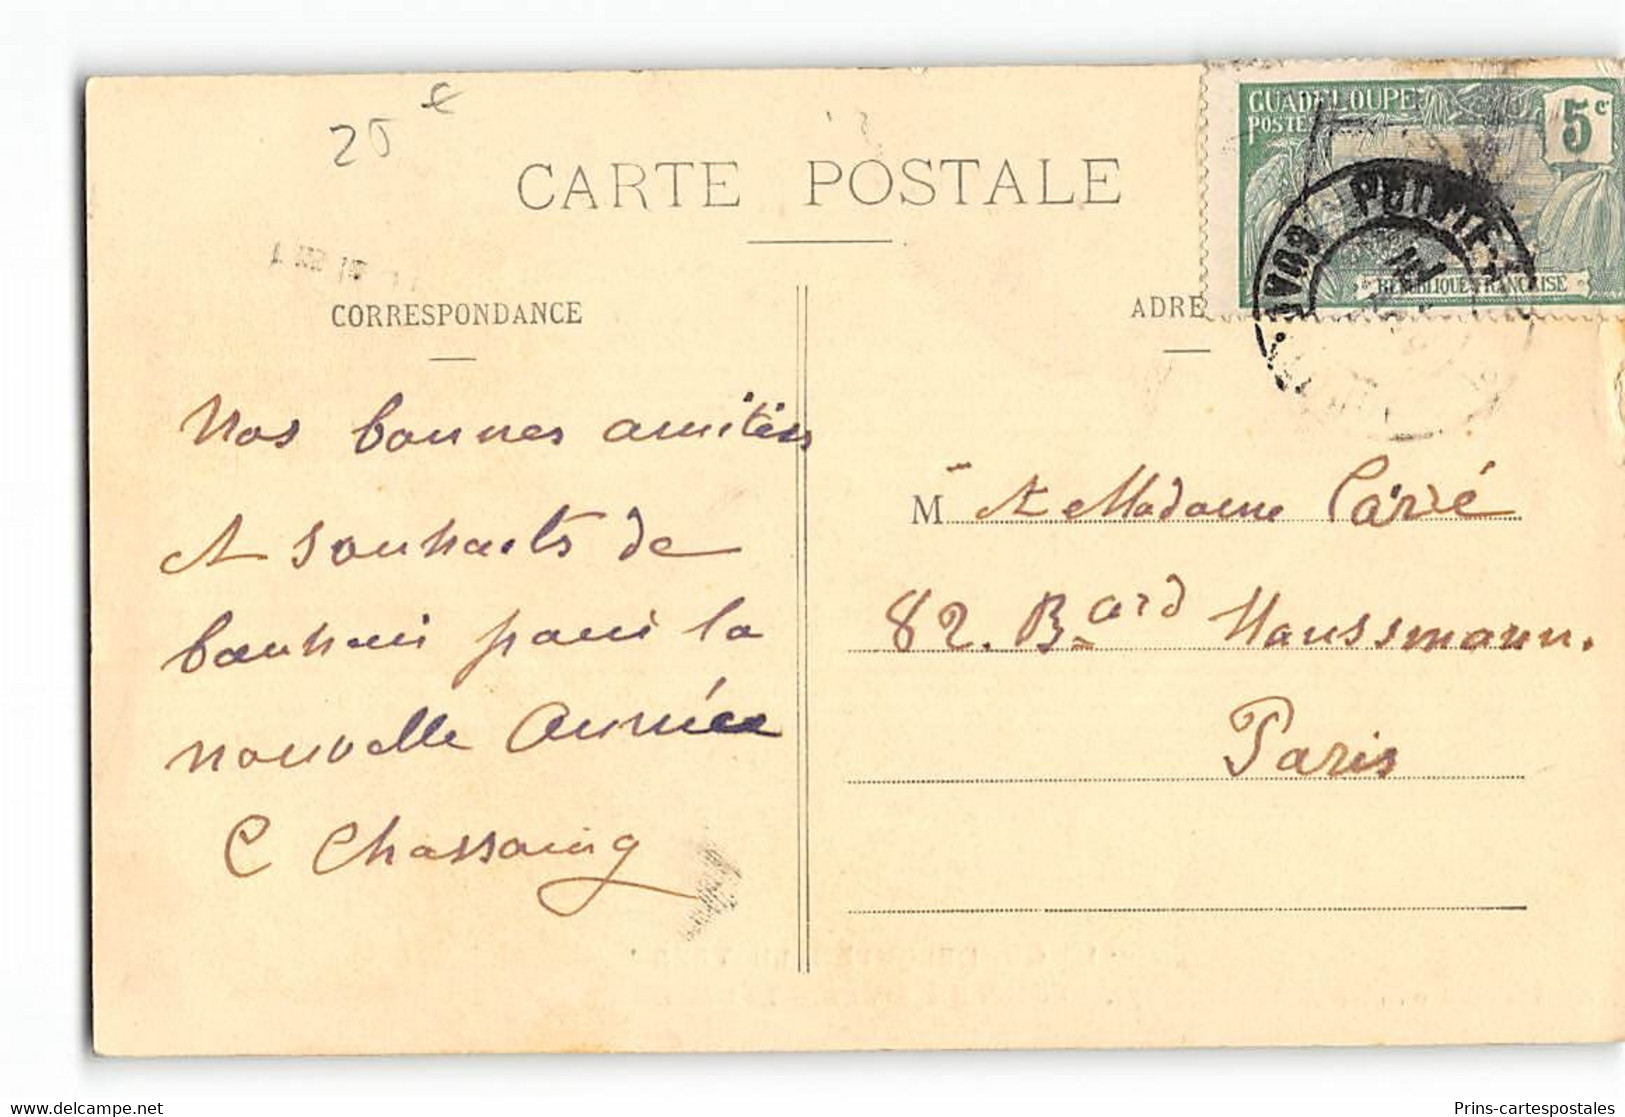 25 €
CARTE POSTALE
GUADELOUPE
POSTES
5 c
RÉPUBLIQUE FRANÇAISE
POINTE
CORRESPONDANCE
Nos bonnes amitiés
et souhaits de
bonheur pour la
nouvelle Année
C Chassaing
ADRE
M r et Madame Carié
82. B ard Haussmann.
Paris
delcampe.net
Prins-cartespostales